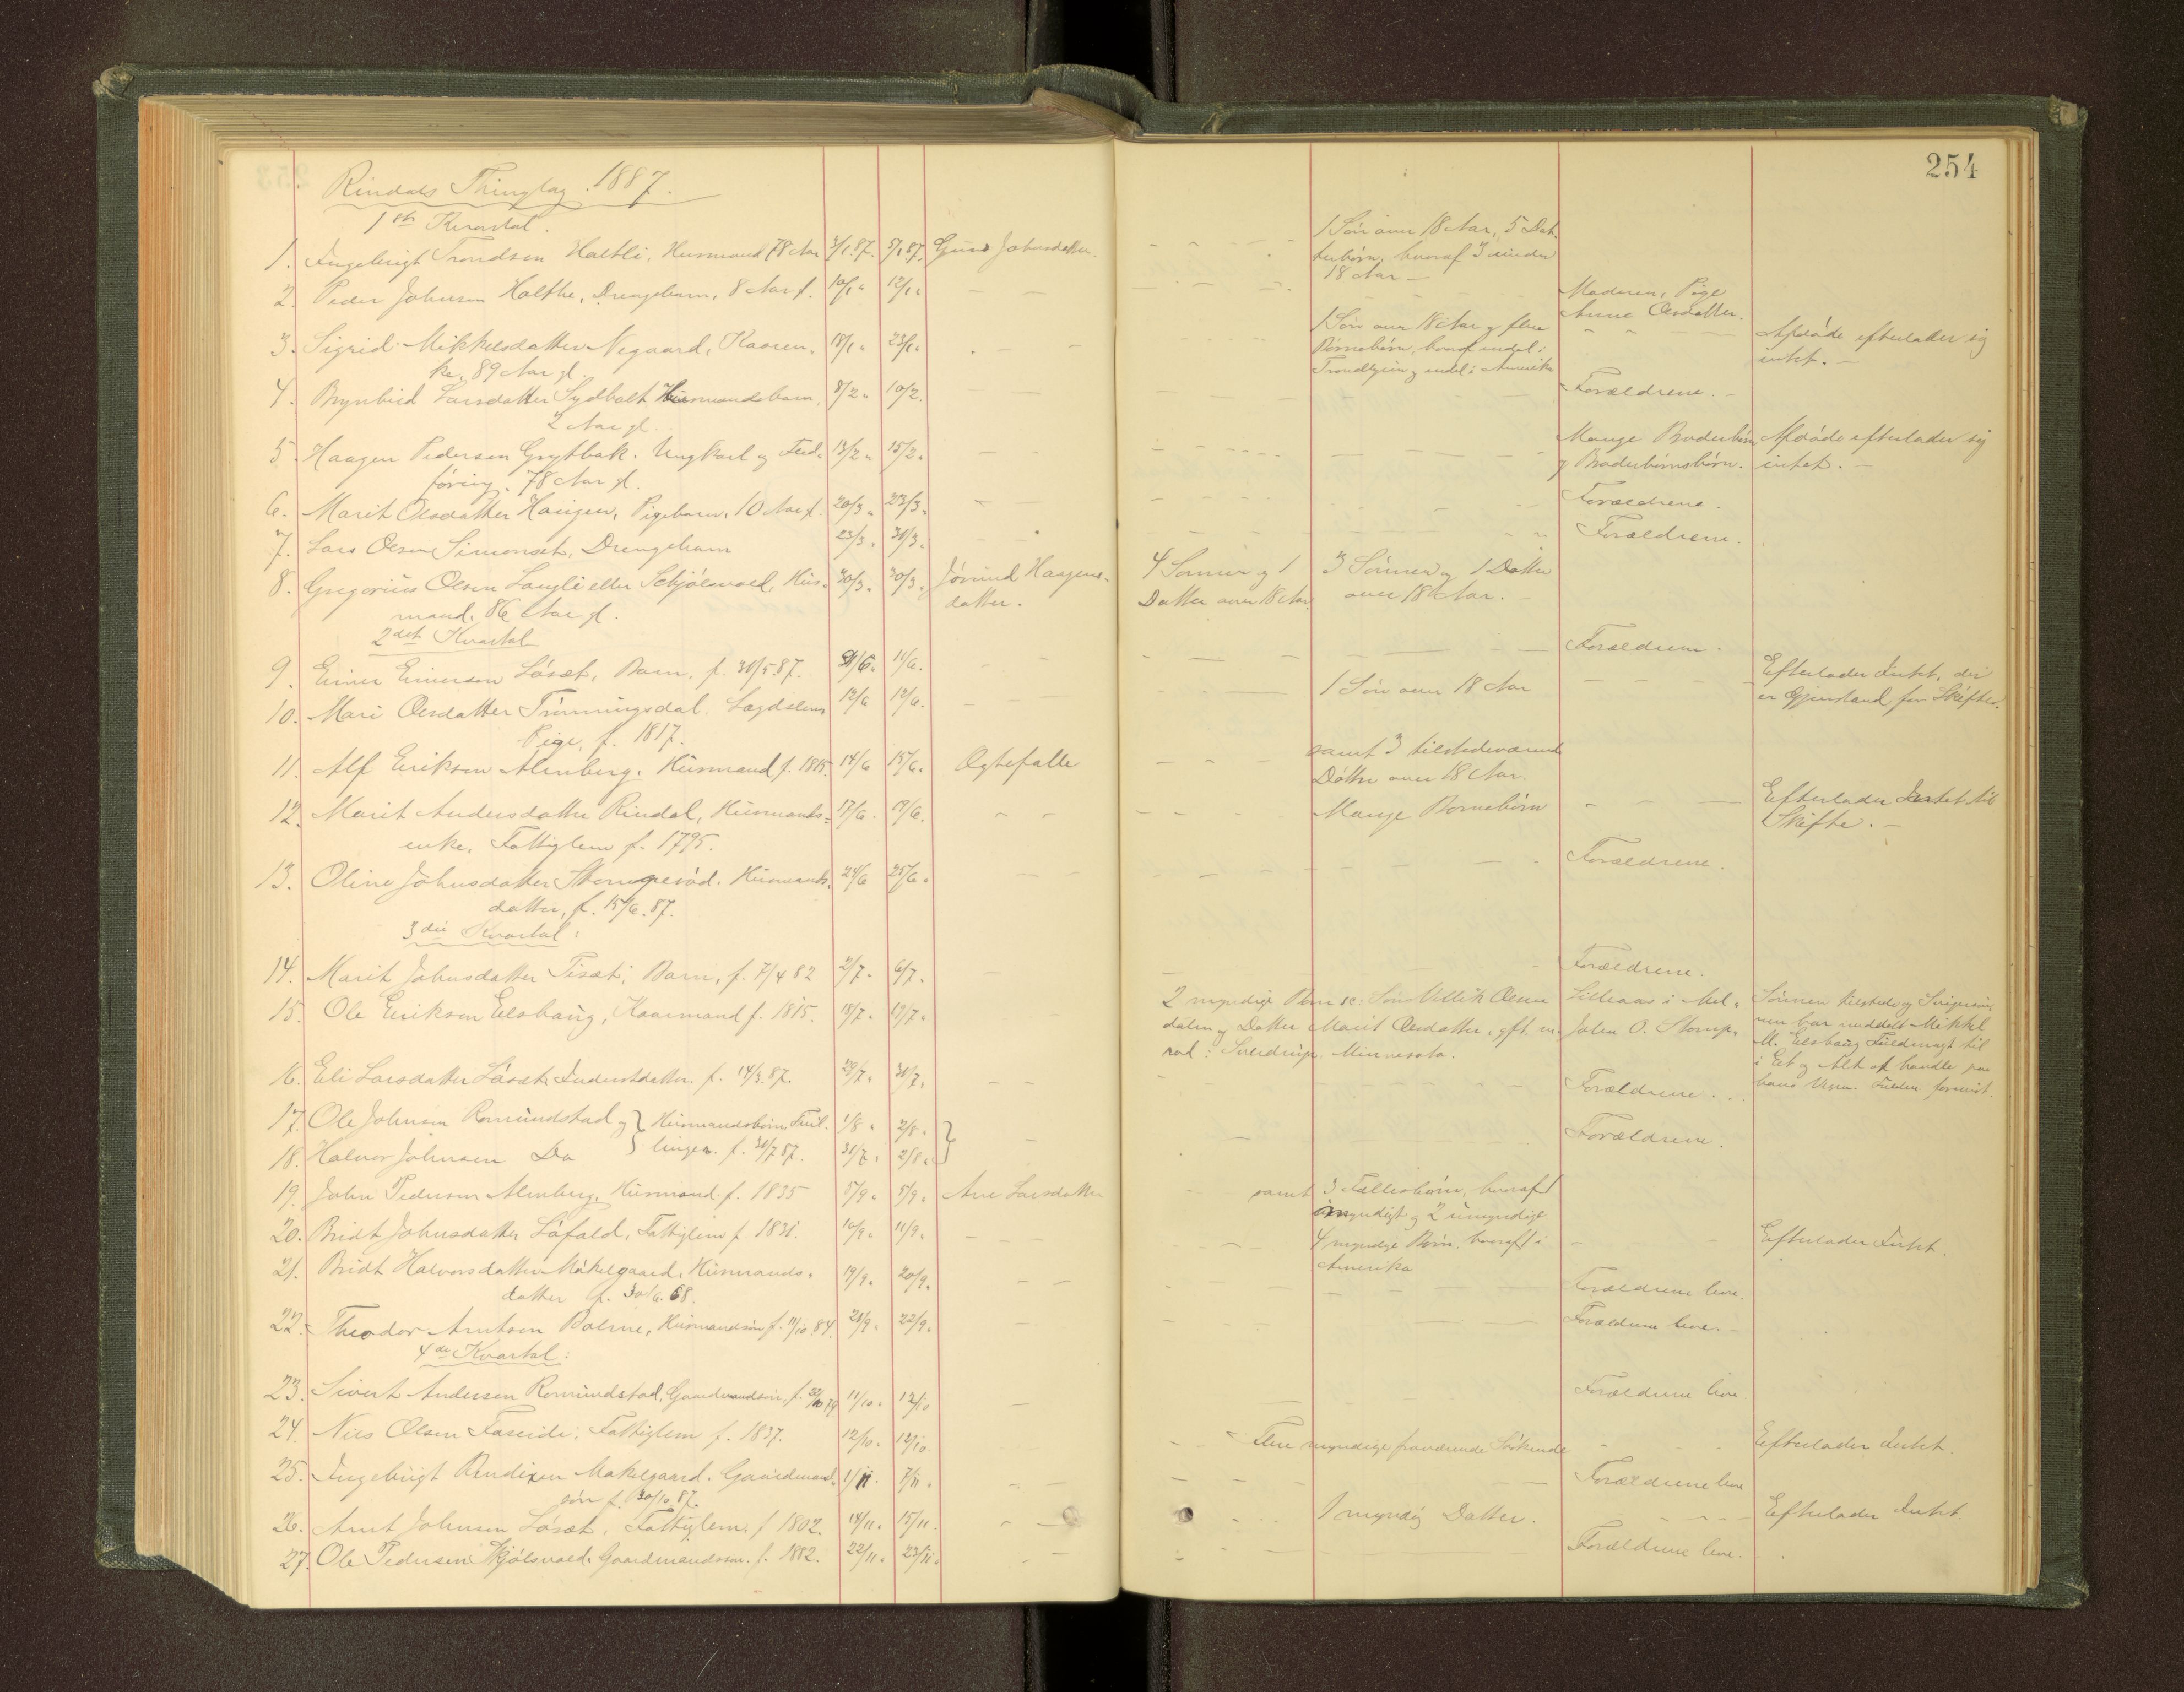 254
Rindals Thinglag. 1887.
1ste Kvartal.
1. Ingebrigt Trondsen Haltli, Husmand 78 Aar 3/1.87. 5/1 87. Guro Johnsdatter. 1 Søn over 18 Aar, 5 Dat-
terbørn, hvoraf 3 under
18 Aar –
2. Peder Johnsen Halthe, Drengebarn, 8 Aar gl. 10/1 " 12/1 " Moderen, Pige
Anne Olsdatter.
3. Sigrid Mikkelsdatter Negaard, Kaaren- 18/1 " 23/1 " 1 Søn over 18 Aar og flere Afdøde efterlader sig
ke, 89 Aar gl. Børnebørn, hvoraf endel i intet. –
Trondhjem og endel i Amerika
4. Brynhild Larsdatter Sydhalt Husmandsbarn, 8/2 " 10/2. Forældrene. –
2 Aar gl.
5. Haagen Pedersen Grytbak. Ungkarl og Fød- 13/2 " 15/2 " Mange Broderbørn Afdøde efterlader sig
føring. 78 Aar gl. og Broderbørnsbørn. intet. –
6. Marit Olsdatter Haugen, Pigebarn, 10 Aar gl. 20/3 " 23/3 " Forældrene.
7. Lars Olsen Simonset, Drengebarn 23/3 " 31/3 " Forældrene.
8. Gregorius Olsen Langli eller Schjølsvold, Hus- 30/3 " 30/3 " Jørund Haagens- 4 Sønner og 1 3 Sønner og 1 Datter
mand, 86 Aar gl. datter. Datter over 18 Aar. over 18 Aar.
2det Kvartal
9. Einer Einersen Løset, Barn, f. 30/5.87. 9/6 " 11/6. Forældrene.
10. Mari Olsdatter Trønningsdal. Lægdslem 12/6 12/6. 1 Søn over 18 Aar Efterlader Intet, der
Pige, f. 1817. er Gjenstand for Skifte.
11. Alf Eriksen Almberg. Husmand f. 1815. 14/6 15/6. Ægtefælle samt 3 tilstedeværende
Døttre over 18 Aar.
12. Marit Andersdatter Rindal, Husmands- 17/6. 19/6. Mange Børnebørn Efterlader Intet til
enke, Fattiglem f. 1795. Skifte. –
13. Oline Johnsdatter Stomperød. Husmands- 24/6 25/6 " Forældrene.
datter, f. 15/6.87.
3die Kvartal:
14. Marit Johnsdatter Tiset; Barn, f. 7/4 82 2/7. 6/7. Forældrene.
15. Ole Eriksen Elshaug, Kaarmand f. 1815. 18/7. 19/7 " 2 myndige Børn sc: Søn Ullrik Olsen Lilleaas i Mel- Sønnen tilstede og Svigersøn-
dalen og Datter Marit Olsdatter, gft. m. John O. Stomp- nen har meddelt Mikkel
rød i Sverdrup Minnesota. M. Elshaug Fuldmagt til
i Et og Alt at handle paa
hans Vegne.
16. Eli Larsdatter Løset, Inderstdatter. f. 14/3.87. 29/7. 30/7. Forældrene.
17. Ole Johnsen Romundstad og } Husmandsbørn, Tvil- 1/8 " 2/8 " } Forældrene.
18. Halvor Johnsen Do } linger. f. 30/7 87. 31/7 " 2/8 "
19. John Pedersen Almberg, Husmand. f. 1835 5/9 " 5/9 " Ane Larsdatter samt 3 Fællesbørn, hvoraf 1
myndigt og 2 umyndige
20. Bridt Johnsdatter Løfald, Fattiglem f. 1831. 10/9 " 11/9 " 4 myndige Børn, hvoraf 1 i Efterlader Intet.
Amerika
21. Bridt Halvorsdatter Mækelgaard, Husmands- 19/9. 20/9. Forældrene leve.
datter f. 30/6.68.
22. Theodor Arntsen Bolme, Husmandsøn f. 11/10.84. 21/9. 22/9. Forældrene leve. –
4de Kvartal:
23. Sivert Andersen Romundstad, Gaardmandsøn, f. 22/10 79 11/10. 12/10 Forældrene leve.
24. Nils Olsen Fæseide, Fattiglem f. 1837. 12/10. 12/10 Flere myndige fraværende Søskende Efterlader Intet.
25. Ingebrigt Bendixen Mækelgaard. Gaardmand- 1/11. 7/11. Forældrene leve
søn f. 30/10.87.
26. Arnt Johnsen Løset, Fattiglem. f 1802. 14/11. 15/11. 1 myndig Datter. Efterlader Intet.
27. Ole Pedersen Skjølsvold. Gaardmandssøn. f. 1882. 22/11. 23/11. Forældrene leve.